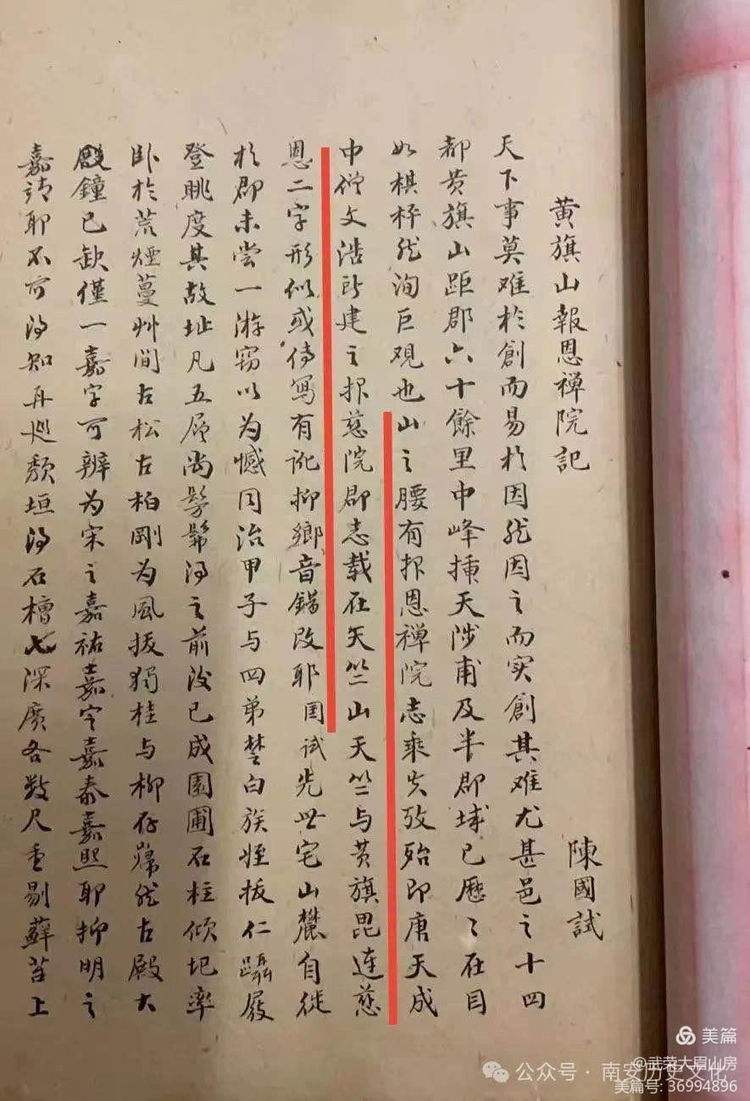 黄旗山報恩禅院記
陳國試
天下事莫難於創而易於因然因之而实創其难尤甚邑之十四
都黄旗山距郡六十餘里中峰揷天陟甫及半郡城已歷〻在目
如棋枰然洵巨覌也山之腰有报恩禅院志乘失攷殆即唐天成
中僧文浩所建之报慈院郡志载在天竺山天竺与黄旗毘连慈
恩二字形似或传写有讹抑鄉音錯改耶国试先世宅山麓自徙
於郡未嘗一游窃以为憾同治甲子与四弟埜白族姪拔仁躡屐
登眺度其故址凡五层尚髣髴得之前後已成園圃石柱倾圯率
卧於荒煙蔓艸间古松古柏刚为風拔獨桂与柳存巋然古殿大
殿鐘已缺僅一嘉字可辨为宋之嘉祐嘉定嘉泰嘉熙耶抑明之
嘉靖耶不可得知再巡颓垣得石槽七深廣各数尺重剔蘚苔上
美篇
@武荣大眉山房
公众号·南安历史文化
美篇号: 36994896